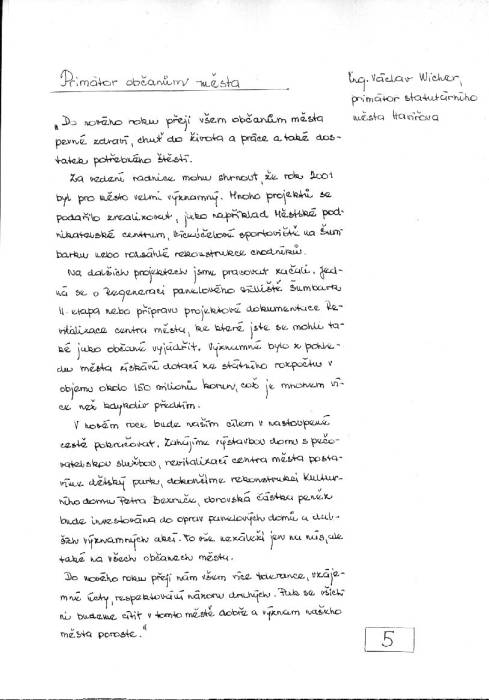 Primátor občanům města
Ing. Václav Wicher,
primátor statutárního
města Havířova
„Do nového roku přeji všem občanům města
pevné zdraví, chuť do života a práce a také dos-
tatek potřebného štěstí.
Za vedení radnice mohu shrnout, že rok 2001
byl pro město velmi významný. Mnoho projektů se
podařilo zrealizovat, jako například Městské pod-
nikatelské centrum, Víceúčelové sportoviště na Šum-
barku nebo rozsáhlé rekonstrukce chodníků.
Na dalších projektech jsme pracovat začali. Jed-
ná se o Regeneraci panelového sídliště Šumbark
II. etapa nebo přípravu projektové dokumentace Re-
vitalizace centra města, ke které jste se mohli ta-
ké jako občané vyjádřit. Významné bylo z pohle-
du města získání dotací ze státního rozpočtu v
objemu okolo 150 milionů korun, což je mnohem ví-
ce než kdykoliv předtím.
V novém roce bude naším cílem v nastoupené
cestě pokračovat. Zahájíme výstavbou domu s pečo-
vatelskou službou, revitalizací centra města posta-
víme dětský park, dokončíme rekonstrukci Kultur-
ního domu Petra Bezruče, obrovská částka peněz
bude investována do oprav panelových domů a dal-
ších významných akcí. To vše nezáleží jen na nás, ale
také na všech občanech města.
Do nového roku přeji nám všem více tolerance, vzáje-
mné úcty, respektování názoru druhých. Pak se všich-
ni budeme cítit v tomto městě dobře a význam našeho
města poroste."
5